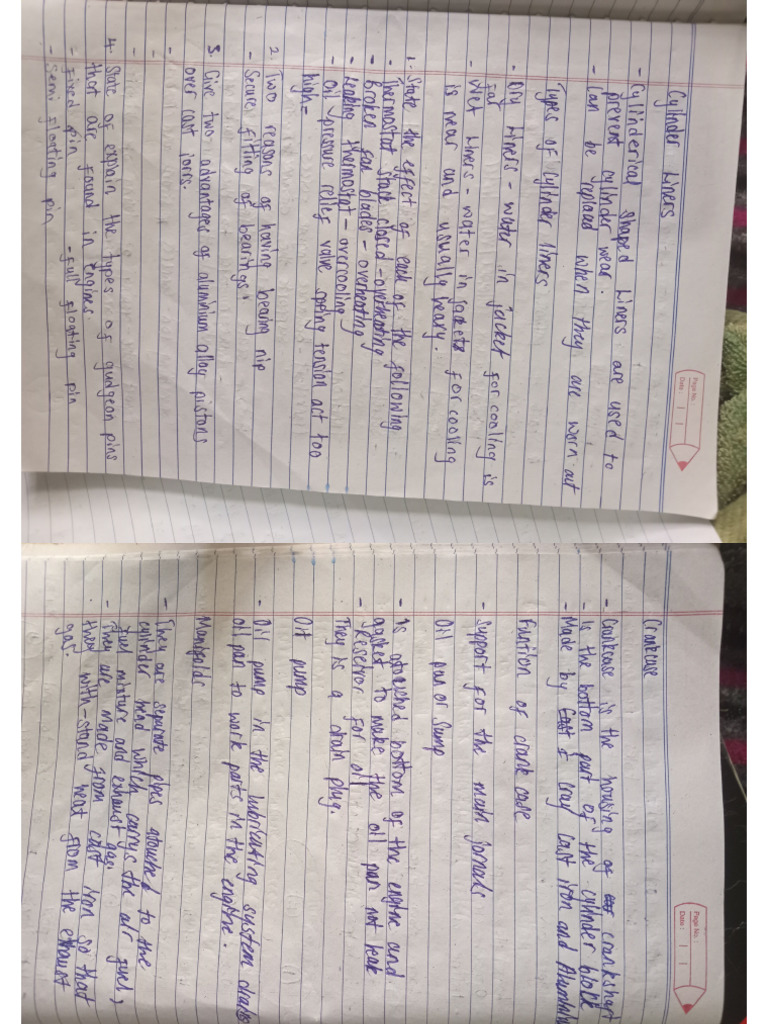 Page No.:
Date: | |
Cylinder Liners
- Cylinderical shaped Liners are used to
prevent cylinder wear.
- Can be replaced when they are worn out
Types of Cylinder liners
- Dry Liners - water in jacket for cooling is
far
- Wet Liners - water in jackets for cooling
is near and usually heavy.
1. State the effect of each of the following
- Thermostat stuck closed - overheating
- broken fan blades - overheating
- Leaking thermostat - overcooling
- oil pressure relief valve spring tension act too
high =
2. Two reasons of having bearing nip
- Secure fitting of bearings.
-
3. Give two advantages of aluminium alloy pistons
over cast iorrs.
-
-
4. State of explain the types of gudgeon pins
that are found in engines.
- Fixed pin - full floating pin
- Semi floating pin
Page No.
Date: | |
Crankcase
- Crankcase is the housing of crankshart
- Is the bottom part of the cylinder block
- Made by Cast I Gray Cast iron and Alumin
Funtion of crank case
- Support for the main jornads
Oil pan or Sump
- Is attached bottom of the engine and
gasket to make the oil pan not leak
- Reservor for oil
They is a drain plug.
Oil pump
- Oil pump in the lubricating system draws
oil pan to work parts in the engine.
Manifolds
- They are separate pipes attached to the
cylinder head which carrys the air fuel,
fuel mixture and exhaust gas.
- They are made from cast iron so that
they with-stand heat from the exhaust
gas.